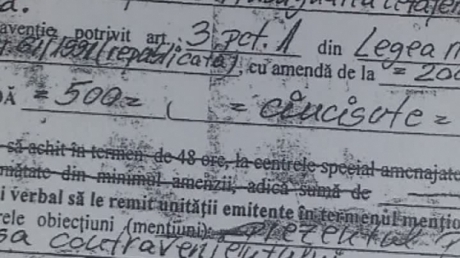 potrivit art. 3 pct. 1 din Legea
61/1991 (republicată), cu amendă de la = 200
= 500 = ( = cincisute =
să achit în termen de 48 ore, la centrele special amenajate
din minimul amenzii, adică sumă de
verbal să le remit unității emitente în termenul
obiecțiuni (mențiuni):
contravenientului